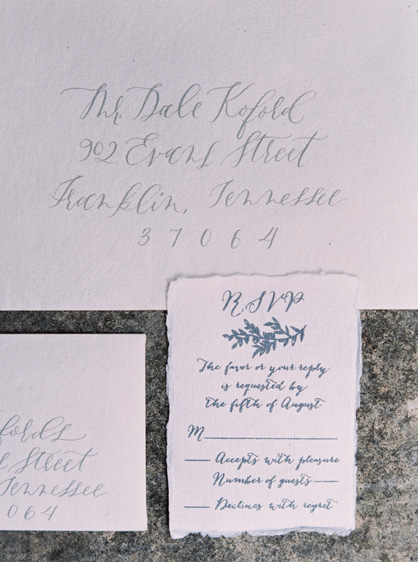 Mr. Dale Koford
902 Evans Street
Franklin, Tennessee
37064
RSVP
The favor or your reply
is requested by
the fifth of August
M
Accepts with pleasure
Number of guests
Declines with regret
fords
Street
Tennessee
064